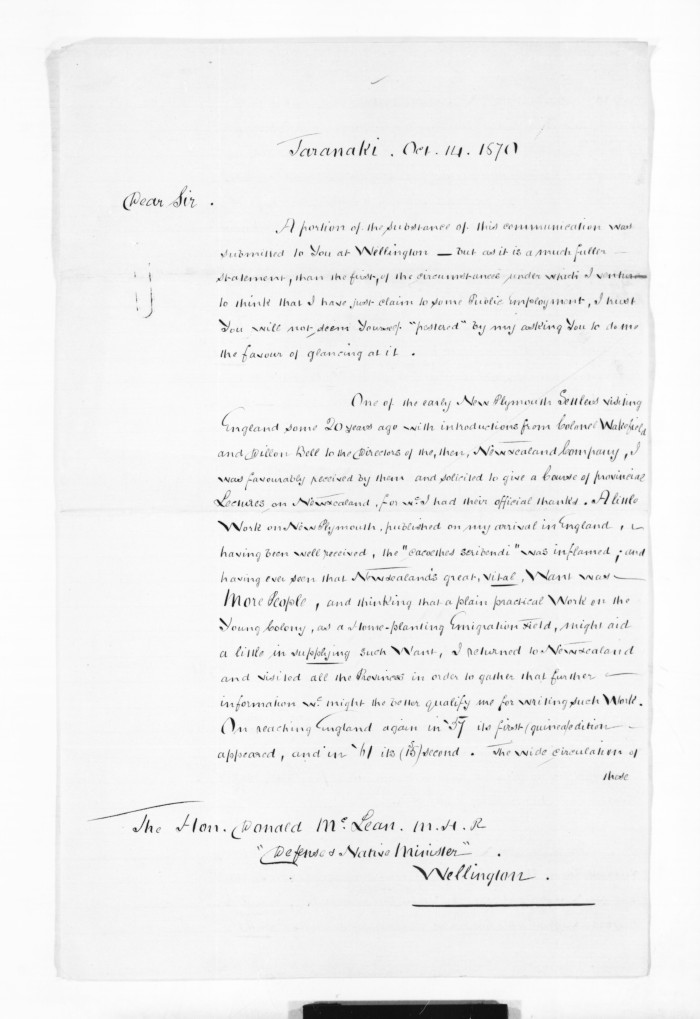 Taranaki. Oct. 14. 1870
Dear Sir.
A portion of the substance of this communication was
submitted to You at Wellington — but as it is a much fuller
statement, than the first, of the circumstances under which I venture
to think that I have just claim to some Public Employment, I trust
You will not deem Yourself "pestered" by my asking You to do me
the favour of glancing at it.
One of the early New Plymouth Settlers visiting
England some 20 years ago with introductions from Colonel Wakefield
and Dillon Bell to the Directors of the, then, New Zealand Company, I
was favourably received by them and solicited to give a Course of provincial
Lectures on New Zealand, for wh. I had their official thanks. A little
Work on New Plymouth, published on my arrival in England, &
having been well received, the "cacoethes scribendi" was inflamed; and
having ever seen that New Zealand's great, vital, Want was
More People, and thinking that a plain practical Work on the
Young Colony, as a Home-planting Emigration Field, might aid
a little in supplying such Want, I returned to New Zealand
and visited all the Provinces in order to gather that further
information wh. might the better qualify me for writing such Work.
On reaching England again in '57 its first (guinea) edition
appeared, and in '61 its second. The wide circulation of
these
The Hon. Donald McLean. M.H.R
"Defense & Native Minister".
Wellington.